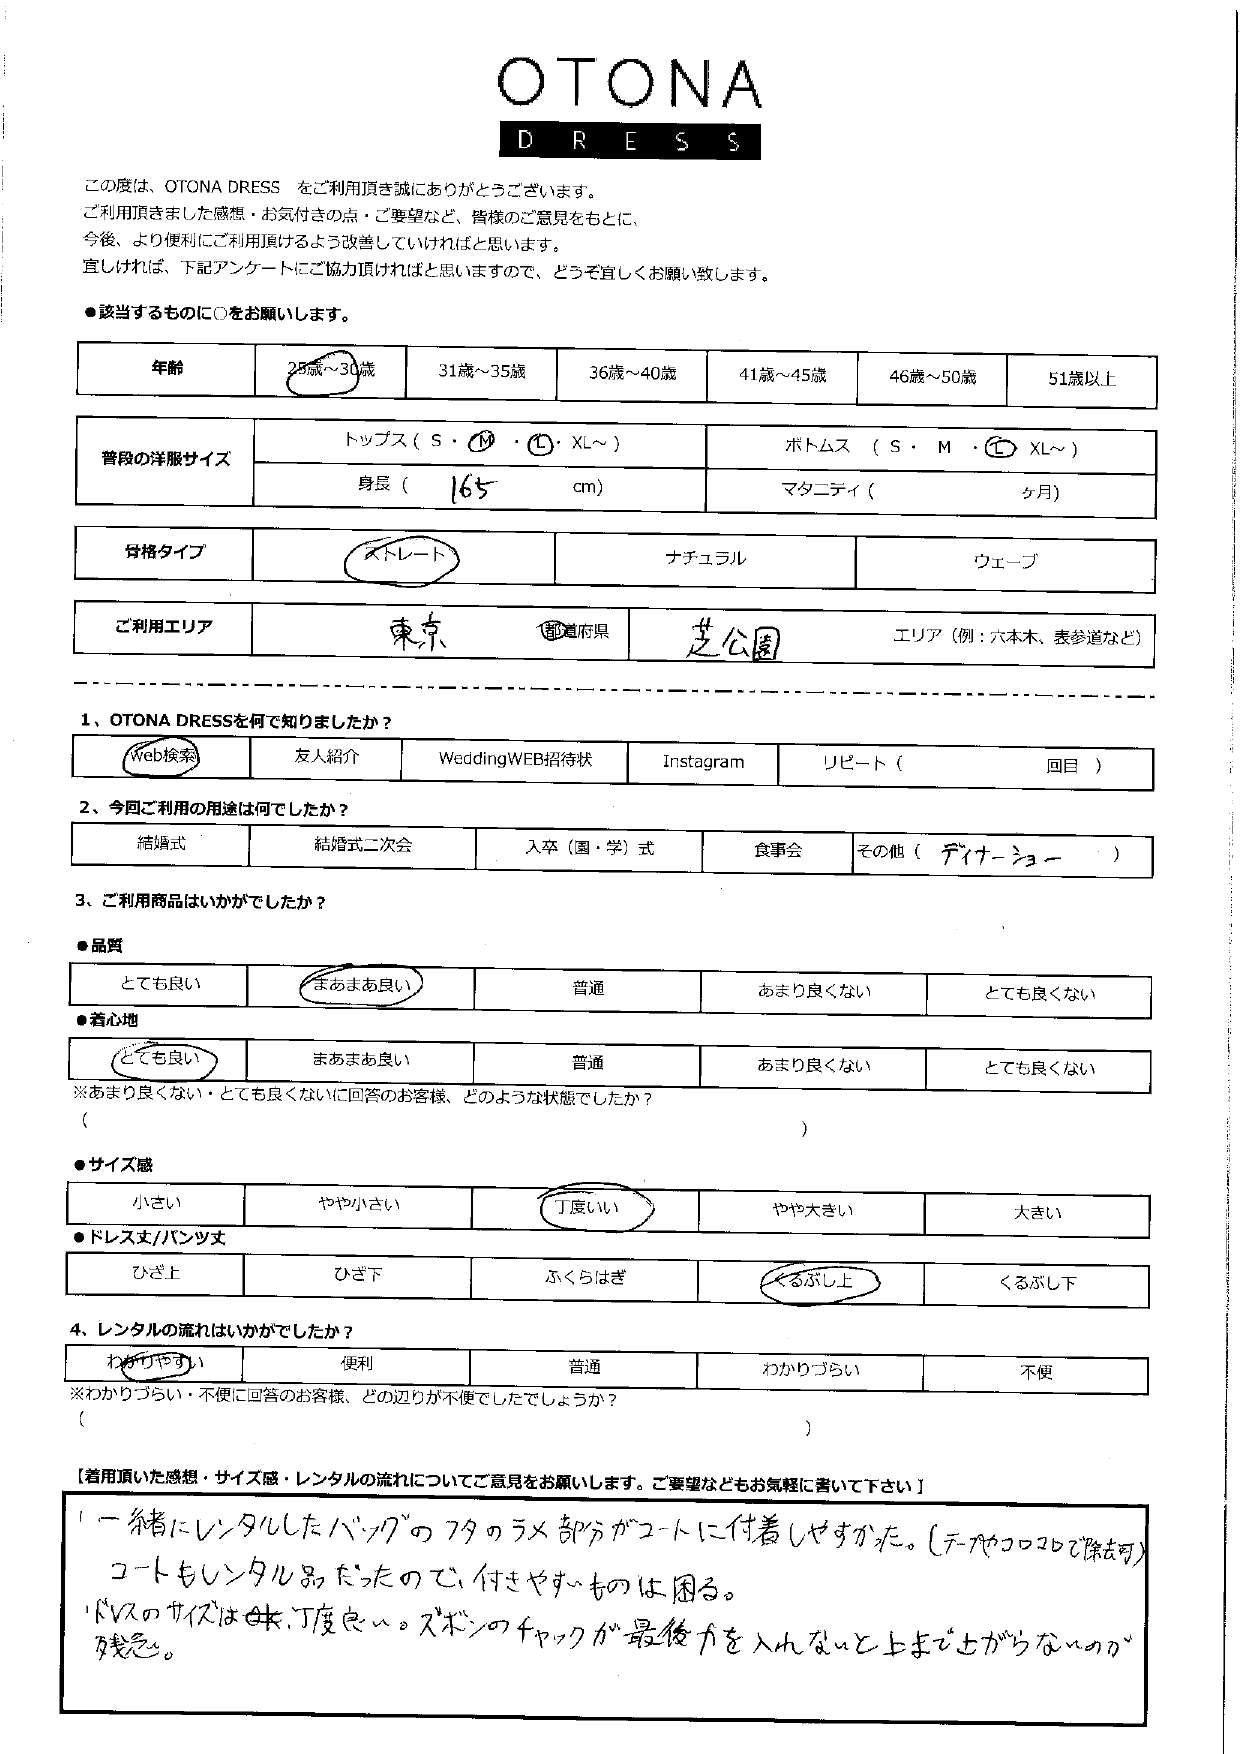 OTONA
DRESS
この度は、OTONA DRESS　をご利用頂き誠にありがとうございます。
ご利用頂きました感想・お気付きの点・ご要望など、皆様のご意見をもとに、
今後、より便利にご利用頂けるよう改善していければと思います。
宜しければ、下記アンケートにご協力頂ければと思いますので、どうぞ宜しくお願い致します。
●該当するものに○をお願いします。
年齢 25歳～30歳 31歳～35歳 36歳～40歳 41歳～45歳 46歳～50歳 51歳以上
普段の洋服サイズ トップス ( S ・ M ・ L ・ XL～ ) ボトムス ( S ・ M ・ L XL～ )
身長 ( 165 cm) マタニティ ( ヶ月)
骨格タイプ ストレート ナチュラル ウェーブ
ご利用エリア 東京 都道府県 芝公園 エリア（例：六本木、表参道など）
1、OTONA DRESSを何で知りましたか？
Web検索 友人紹介 WeddingWEB招待状 Instagram リピート ( 回目 )
2、今回ご利用の用途は何でしたか？
結婚式 結婚式二次会 入卒（園・学）式 食事会 その他 ( ディナーショー )
3、ご利用商品はいかがでしたか？
●品質
とても良い まあまあ良い 普通 あまり良くない とても良くない
●着心地
とても良い まあまあ良い 普通 あまり良くない とても良くない
※あまり良くない・とても良くないに回答のお客様、どのような状態でしたか？
( )
●サイズ感
小さい やや小さい 丁度いい やや大きい 大きい
●ドレス丈/パンツ丈
ひざ上 ひざ下 ふくらはぎ くるぶし上 くるぶし下
4、レンタルの流れはいかがでしたか？
わかりやすい 便利 普通 わかりづらい 不便
※わかりづらい・不便に回答のお客様、どの辺りが不便でしたでしょうか？
( )
【着用頂いた感想・サイズ感・レンタルの流れについてご意見をお願いします。ご要望などもお気軽に書いて下さい】
・一緒にレンタルしたバッグのフタのラメ部分がコートに付着しやすかった。(テープやコロコロで除去可)
コートもレンタル品だったので、付きやすいものは困る。
・ドレスのサイズは丁度良い。ズボンのチャックが最後力を入れないと上まで上がらないのが
残念。